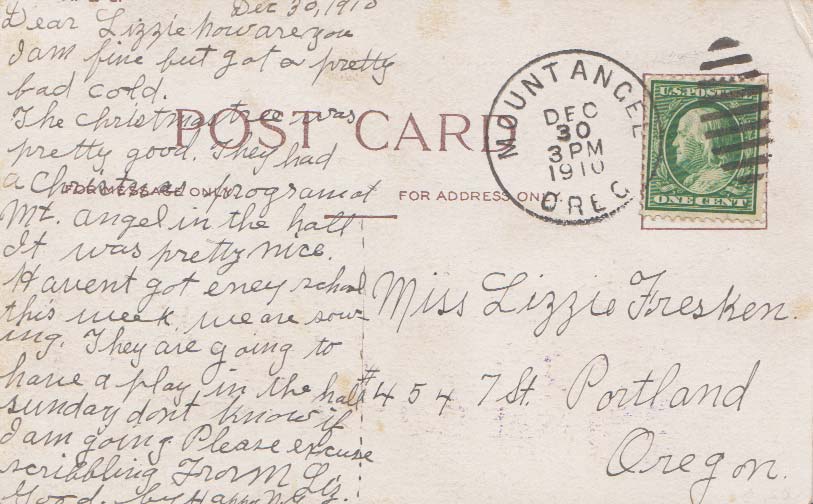 Dec 30, 1910
Dear Lizzie how are you
I am fine but got a pretty
bad cold.
The christmas tree was
pretty good. They had
a Christmas program at
Mt. angel in the hall
It was pretty nice.
Havent got eney school
this week. we are sow-
ing. They are going to
have a play in the hall
sunday dont know if
I am going Please excuse
scribbling From
Good. by Happy N.Y.
POST CARD
FOR MESSAGE ONLY.
FOR ADDRESS ONLY.
MOUNT ANGEL
DEC
30
3 PM
1910
OREG.
U.S. POSTAGE
ONE CENT
Miss Lizzie Fresken.
#454 7 St. Portland
Oregon.